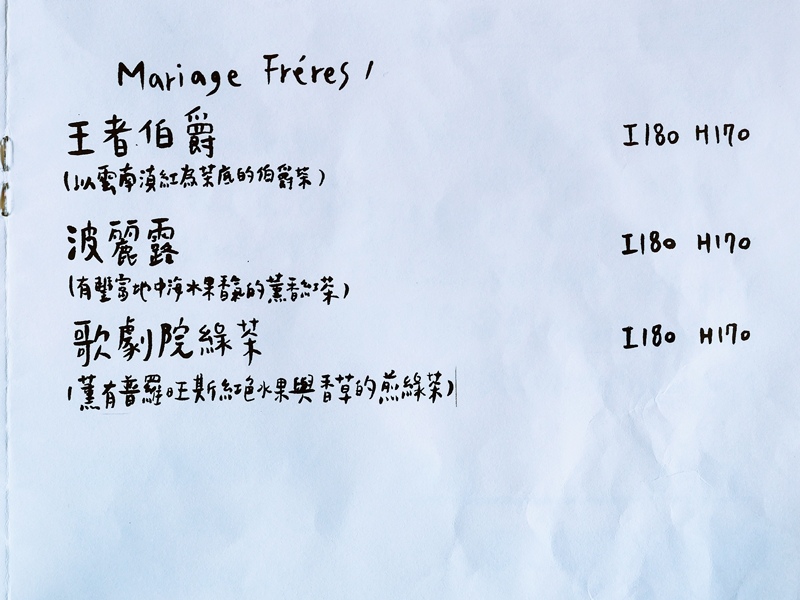 Mariage Fréres /
王者伯爵 I180 H170
(以雲南滇紅為茶底的伯爵茶)
波麗露 I180 H170
(有豐富地中海水果香氣的薰香紅茶)
歌劇院綠茶 I180 H170
(薰有普羅旺斯紅色水果與香草的煎綠茶)